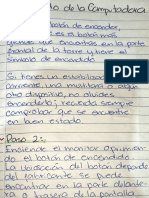 to de la Computadora
botón de encender,
es el botón más
grande que encuentras en la parte
frontal de la torre y tiene el
símbolo de encendido
Si tienes un estabilizador de
corriente, una multitoma o algún
otro dispositivo, no olvides
encenderlo; recuerda siempre
comprobar que se encuentre
en buen estado.
Paso 2:
Enciende el monitor oprimien-
do el botón de encendido.
La ubicación del botón depende
del fabricante. Se puede
encontrar en la parte delante-
ra o trasera de la pantalla